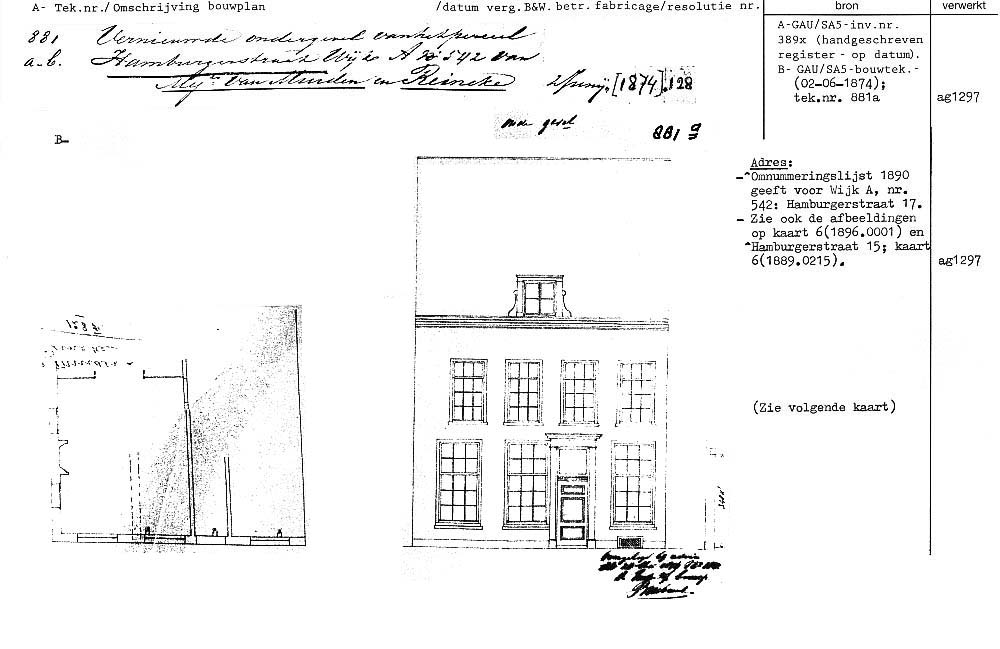 A- Tek.nr./ Omschrijving bouwplan /datum verg.B&W. betr. fabricage/resolutie nr. bron verwerkt
881 Vernieuwde ondergevel van het perceel
a.b. Hamburgerstraat Wijk A No 542 van
Mijn Van Muiden en Reineke 2 Junij.[1874].128
881 a
A-GAU/SA5-inv.nr.
389x (handgeschreven
register - op datum).
B- GAU/SA5-bouwtek.-
(02-06-1874);
tek.nr. 881a ag1297
B-
Adres:
-^Omnummeringslijst 1890
geeft voor Wijk A, nr.
542: Hamburgerstraat 17.
- Zie ook de afbeeldingen
op kaart 6(1896.0001) en
^Hamburgerstraat 15; kaart
6(1889.0215). ag1297
(Zie volgende kaart)